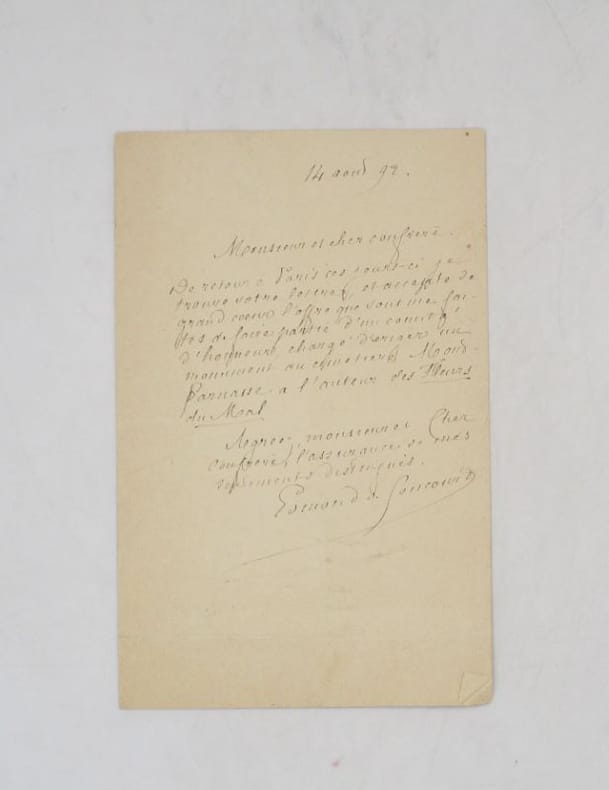 14 aout 92.
Monsieur et cher confrère.
De retour à Paris ces jours-ci je
trouve votre lettre, et accepte de
grand coeur l'offre que vous me fai-
tes de faire partie d'un comité
d'honneur, chargé d'eriger un
monument au cimetière Mont-
Parnasse à l'auteur des Fleurs
du Mal
Agréez, monsieur et cher
confrère, l'assurance de mes
sentiments distingués.
Edmond de Goncourt